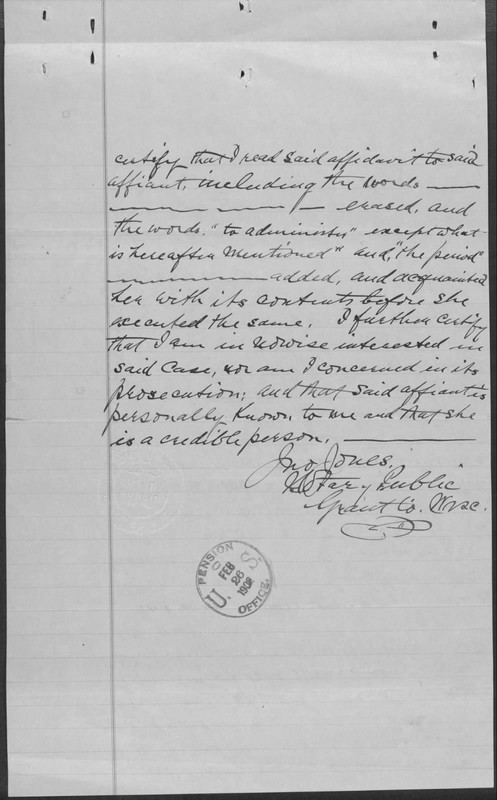 certify that I read said affidavit to said
affiant, including the words
erased, and
the words, "to administer" except what
is hereafter mentioned" and, "the period"
added, and acquainted
her with its contents before she
executed the same. I further certify
that I am in nowise interested in
said case, nor am I concerned in its
prosecution; and that said affiant is
personally known to me and that she
is a credible person.
Jno Jones.
Notary Public
Grant Co. Wisc.
U. S. PENSION OFFICE.
FEB
26